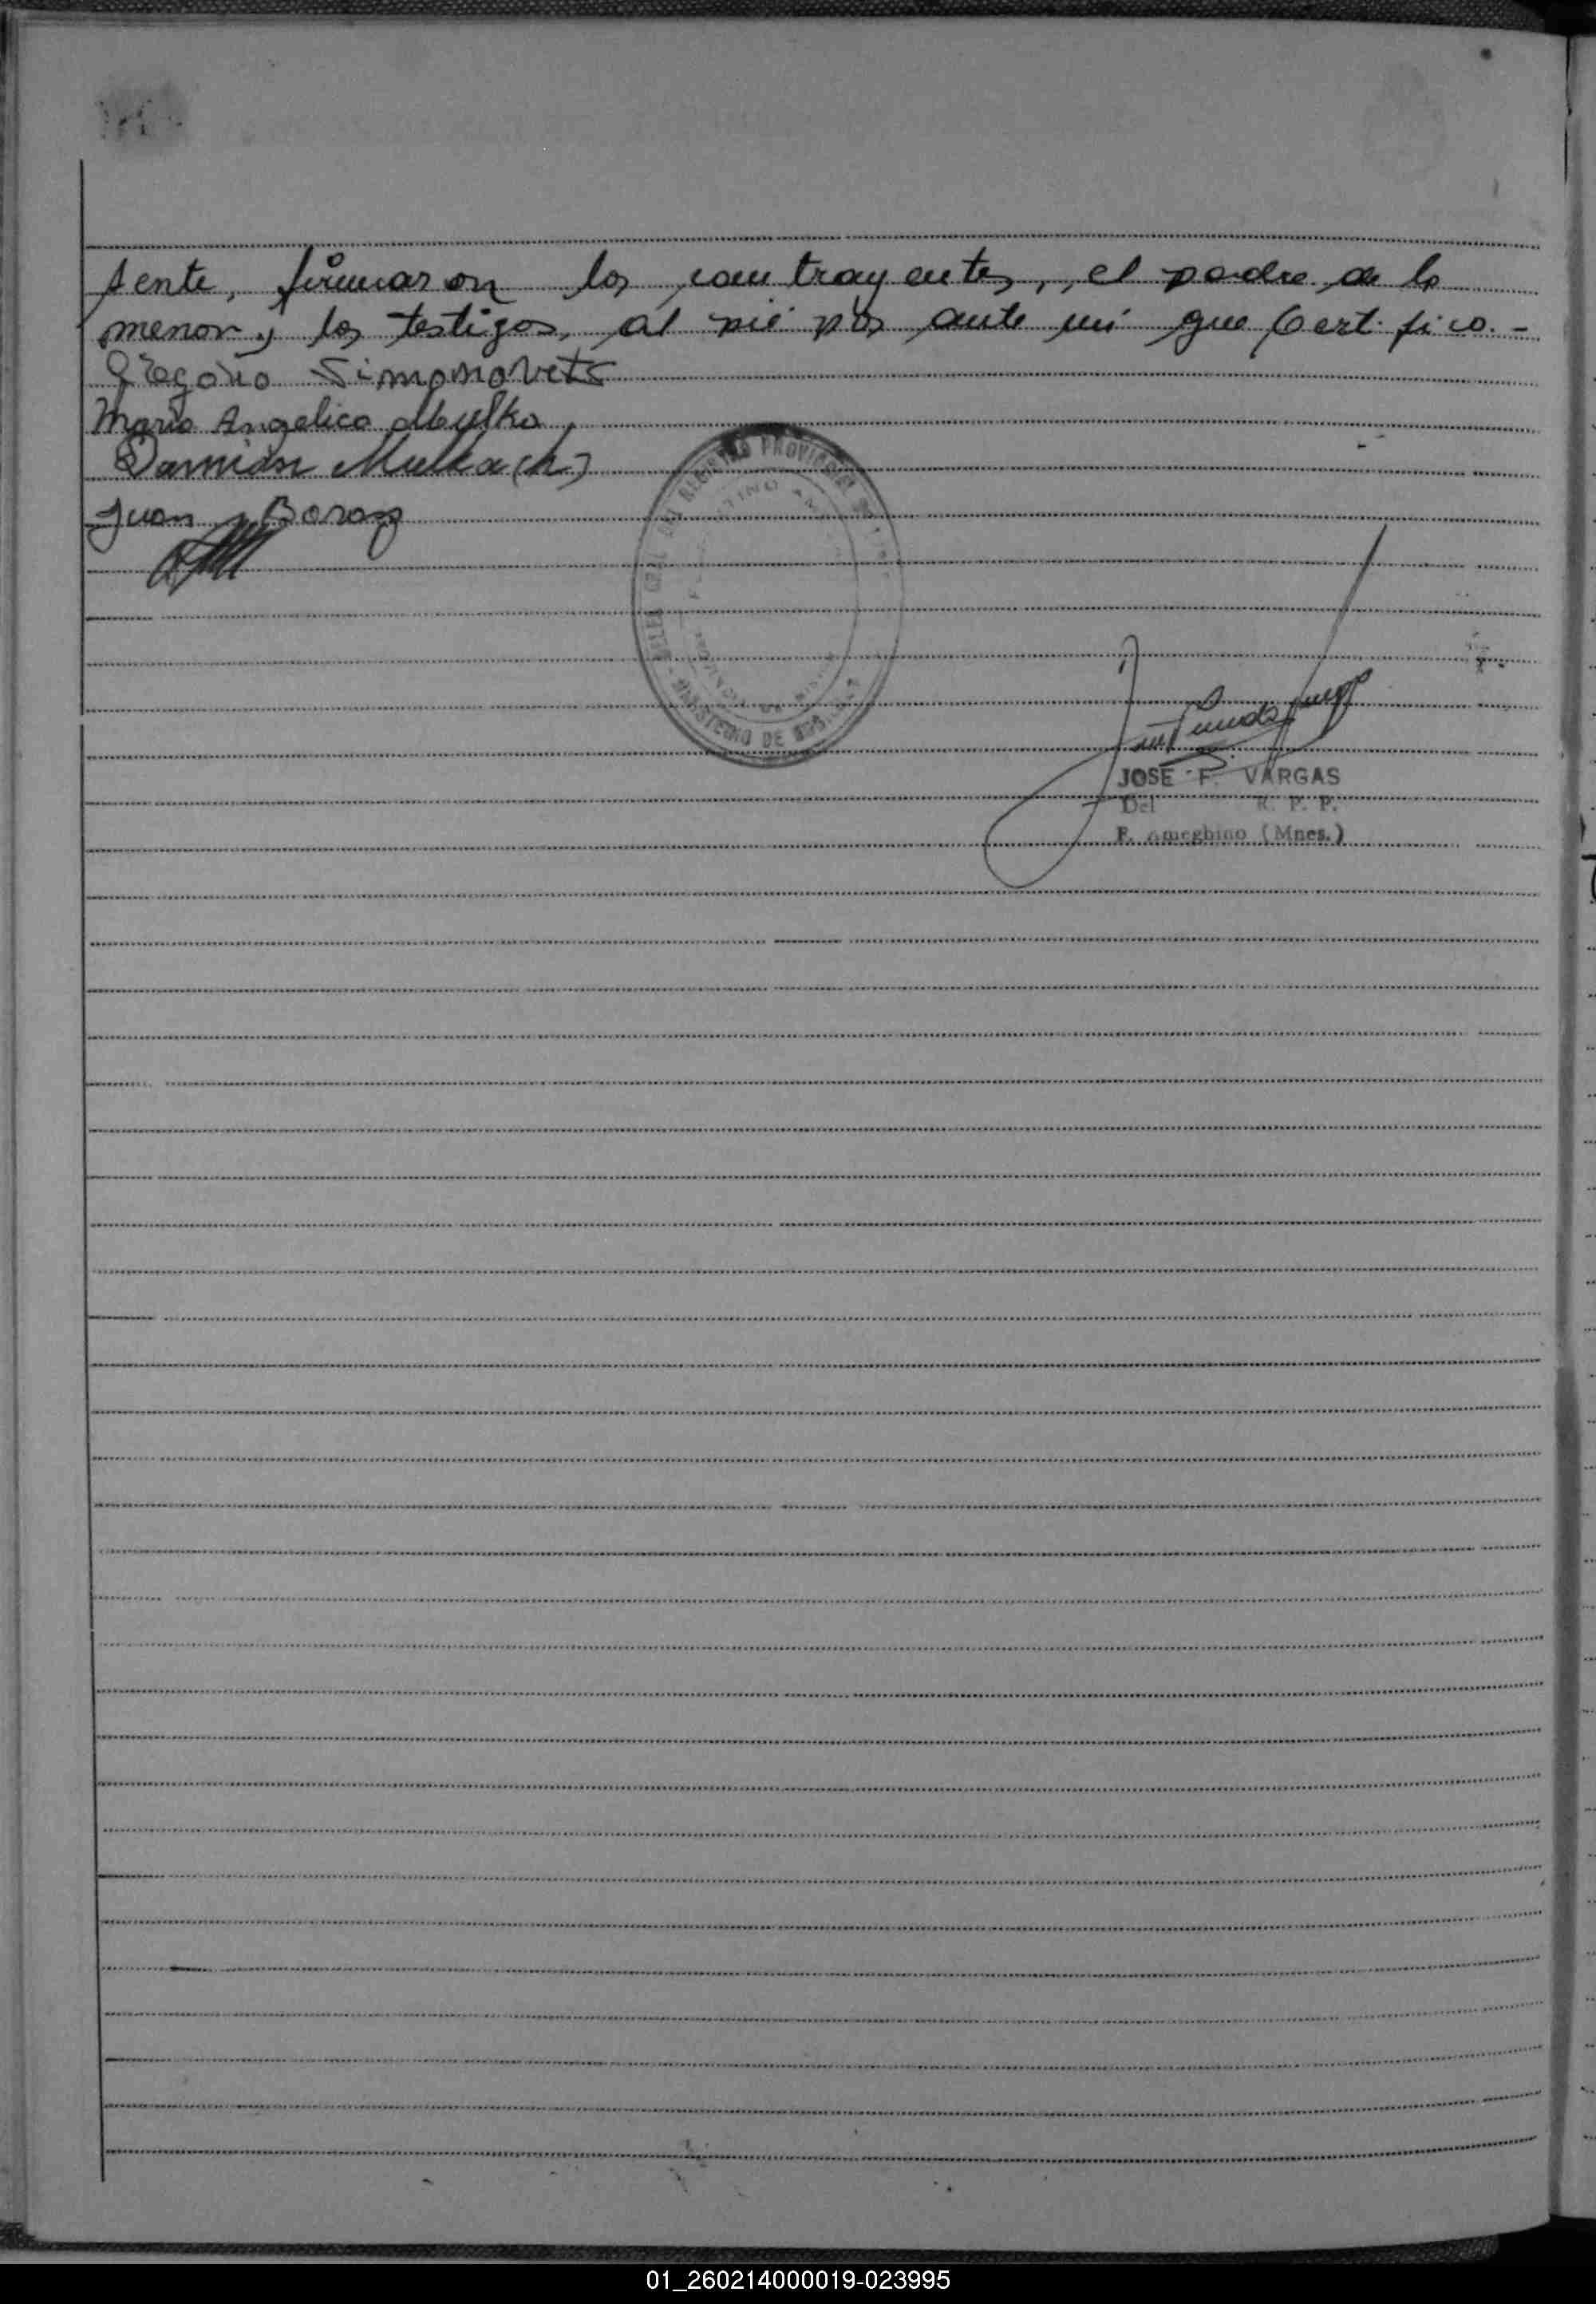 sente, firmaron los contrayentes, el padre de la
menor y los testigos, al pié por ante mi que Certifico.-
Gregorio Simonovets
Maria Angelica Mulka
Damian Mulka (h)
Juan Boraz
REGISTRO PROVINCIAL
MINISTERIO DE
JOSE F. VARGAS
Del R. P. P.
F. Ameghino (Mnes.)
01_260214000019-023995